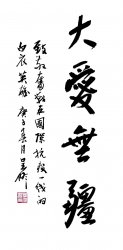 大愛無疆
致敬奮戰在國際抗疫一線的
白衣英雄 庚子